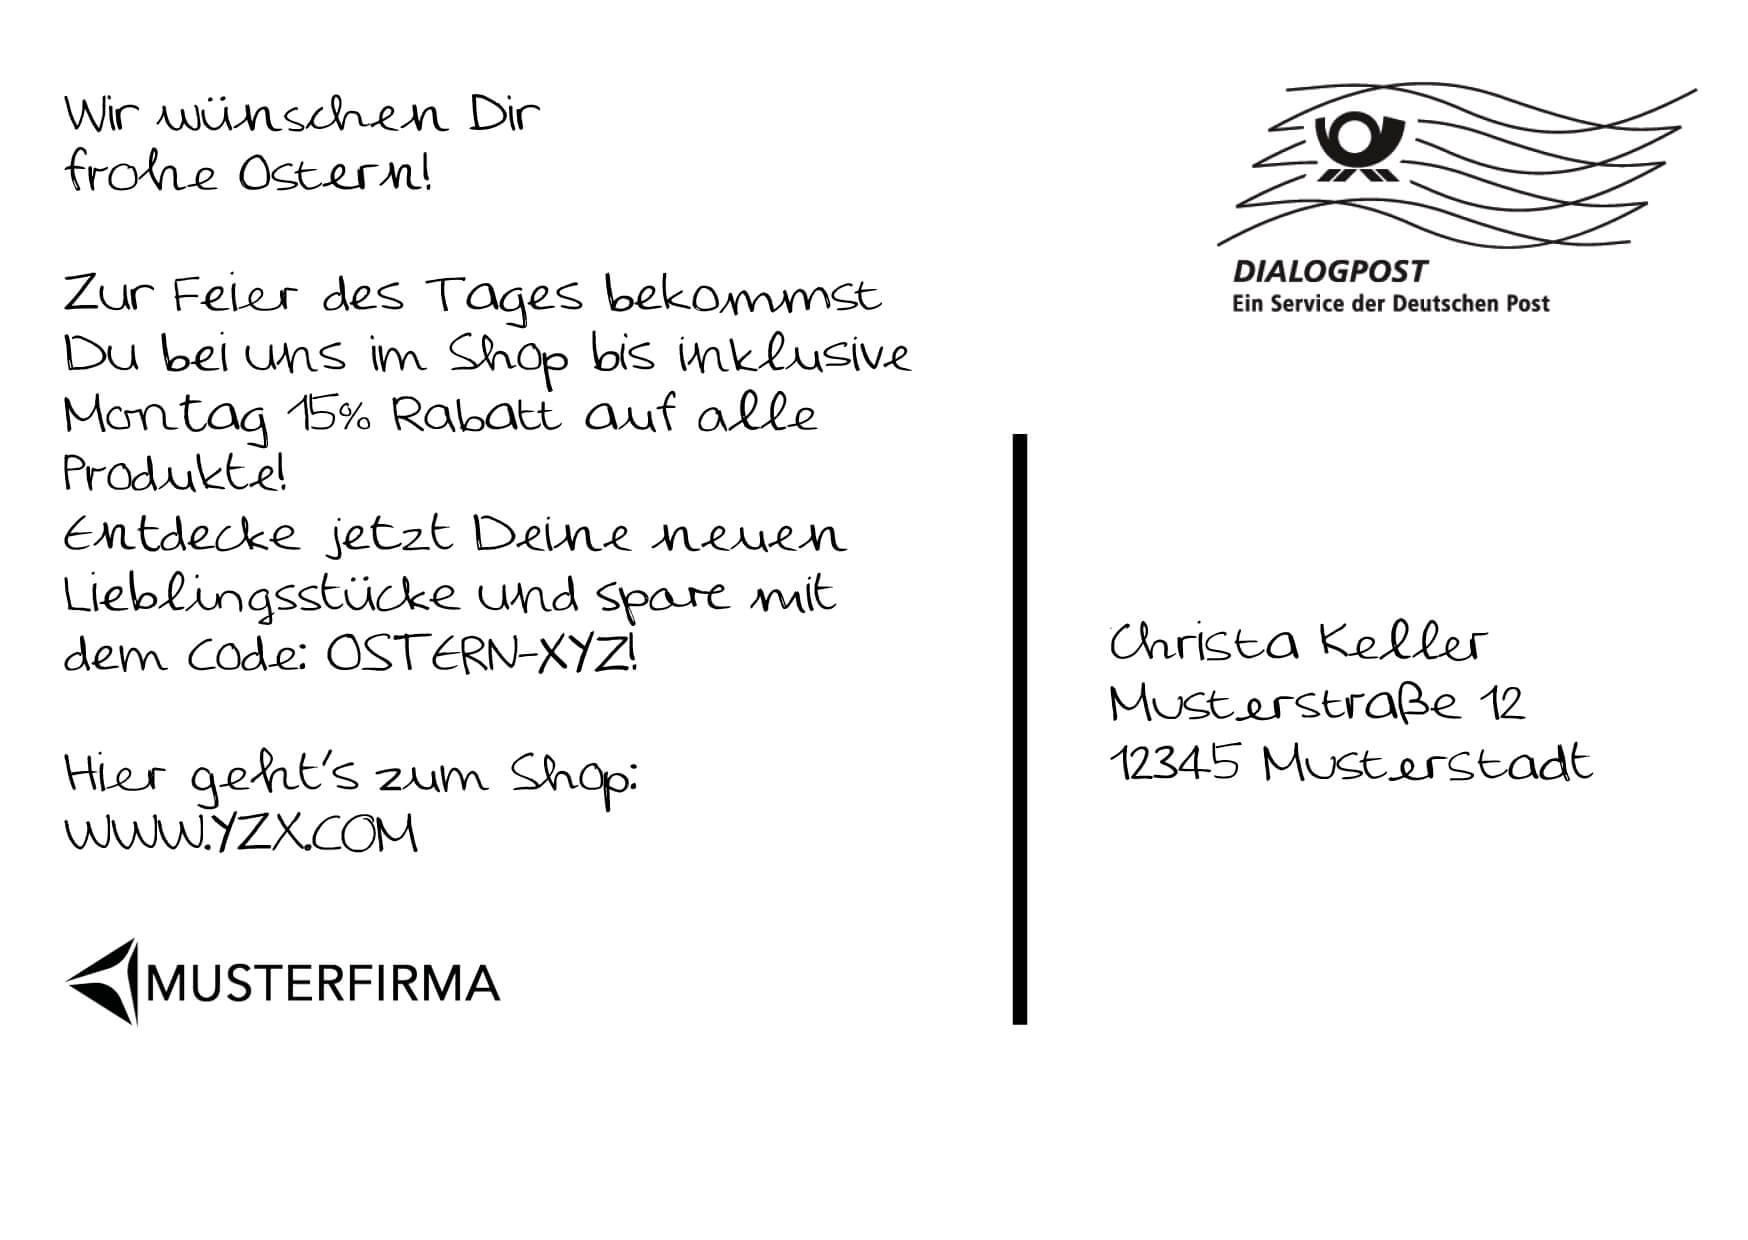 Wir wünschen Dir
frohe Ostern!
Zur Feier des Tages bekommst
Du bei uns im Shop bis inklusive
Montag 15% Rabatt auf alle
Produkte!
Entdecke jetzt Deine neuen
Lieblingsstücke und spare mit
dem Code: OSTERN-XYZ!
Hier geht's zum Shop:
WWW.YZX.COM
MUSTERFIRMA
DIALOGPOST
Ein Service der Deutschen Post
Christa Keller
Musterstraße 12
12345 Musterstadt